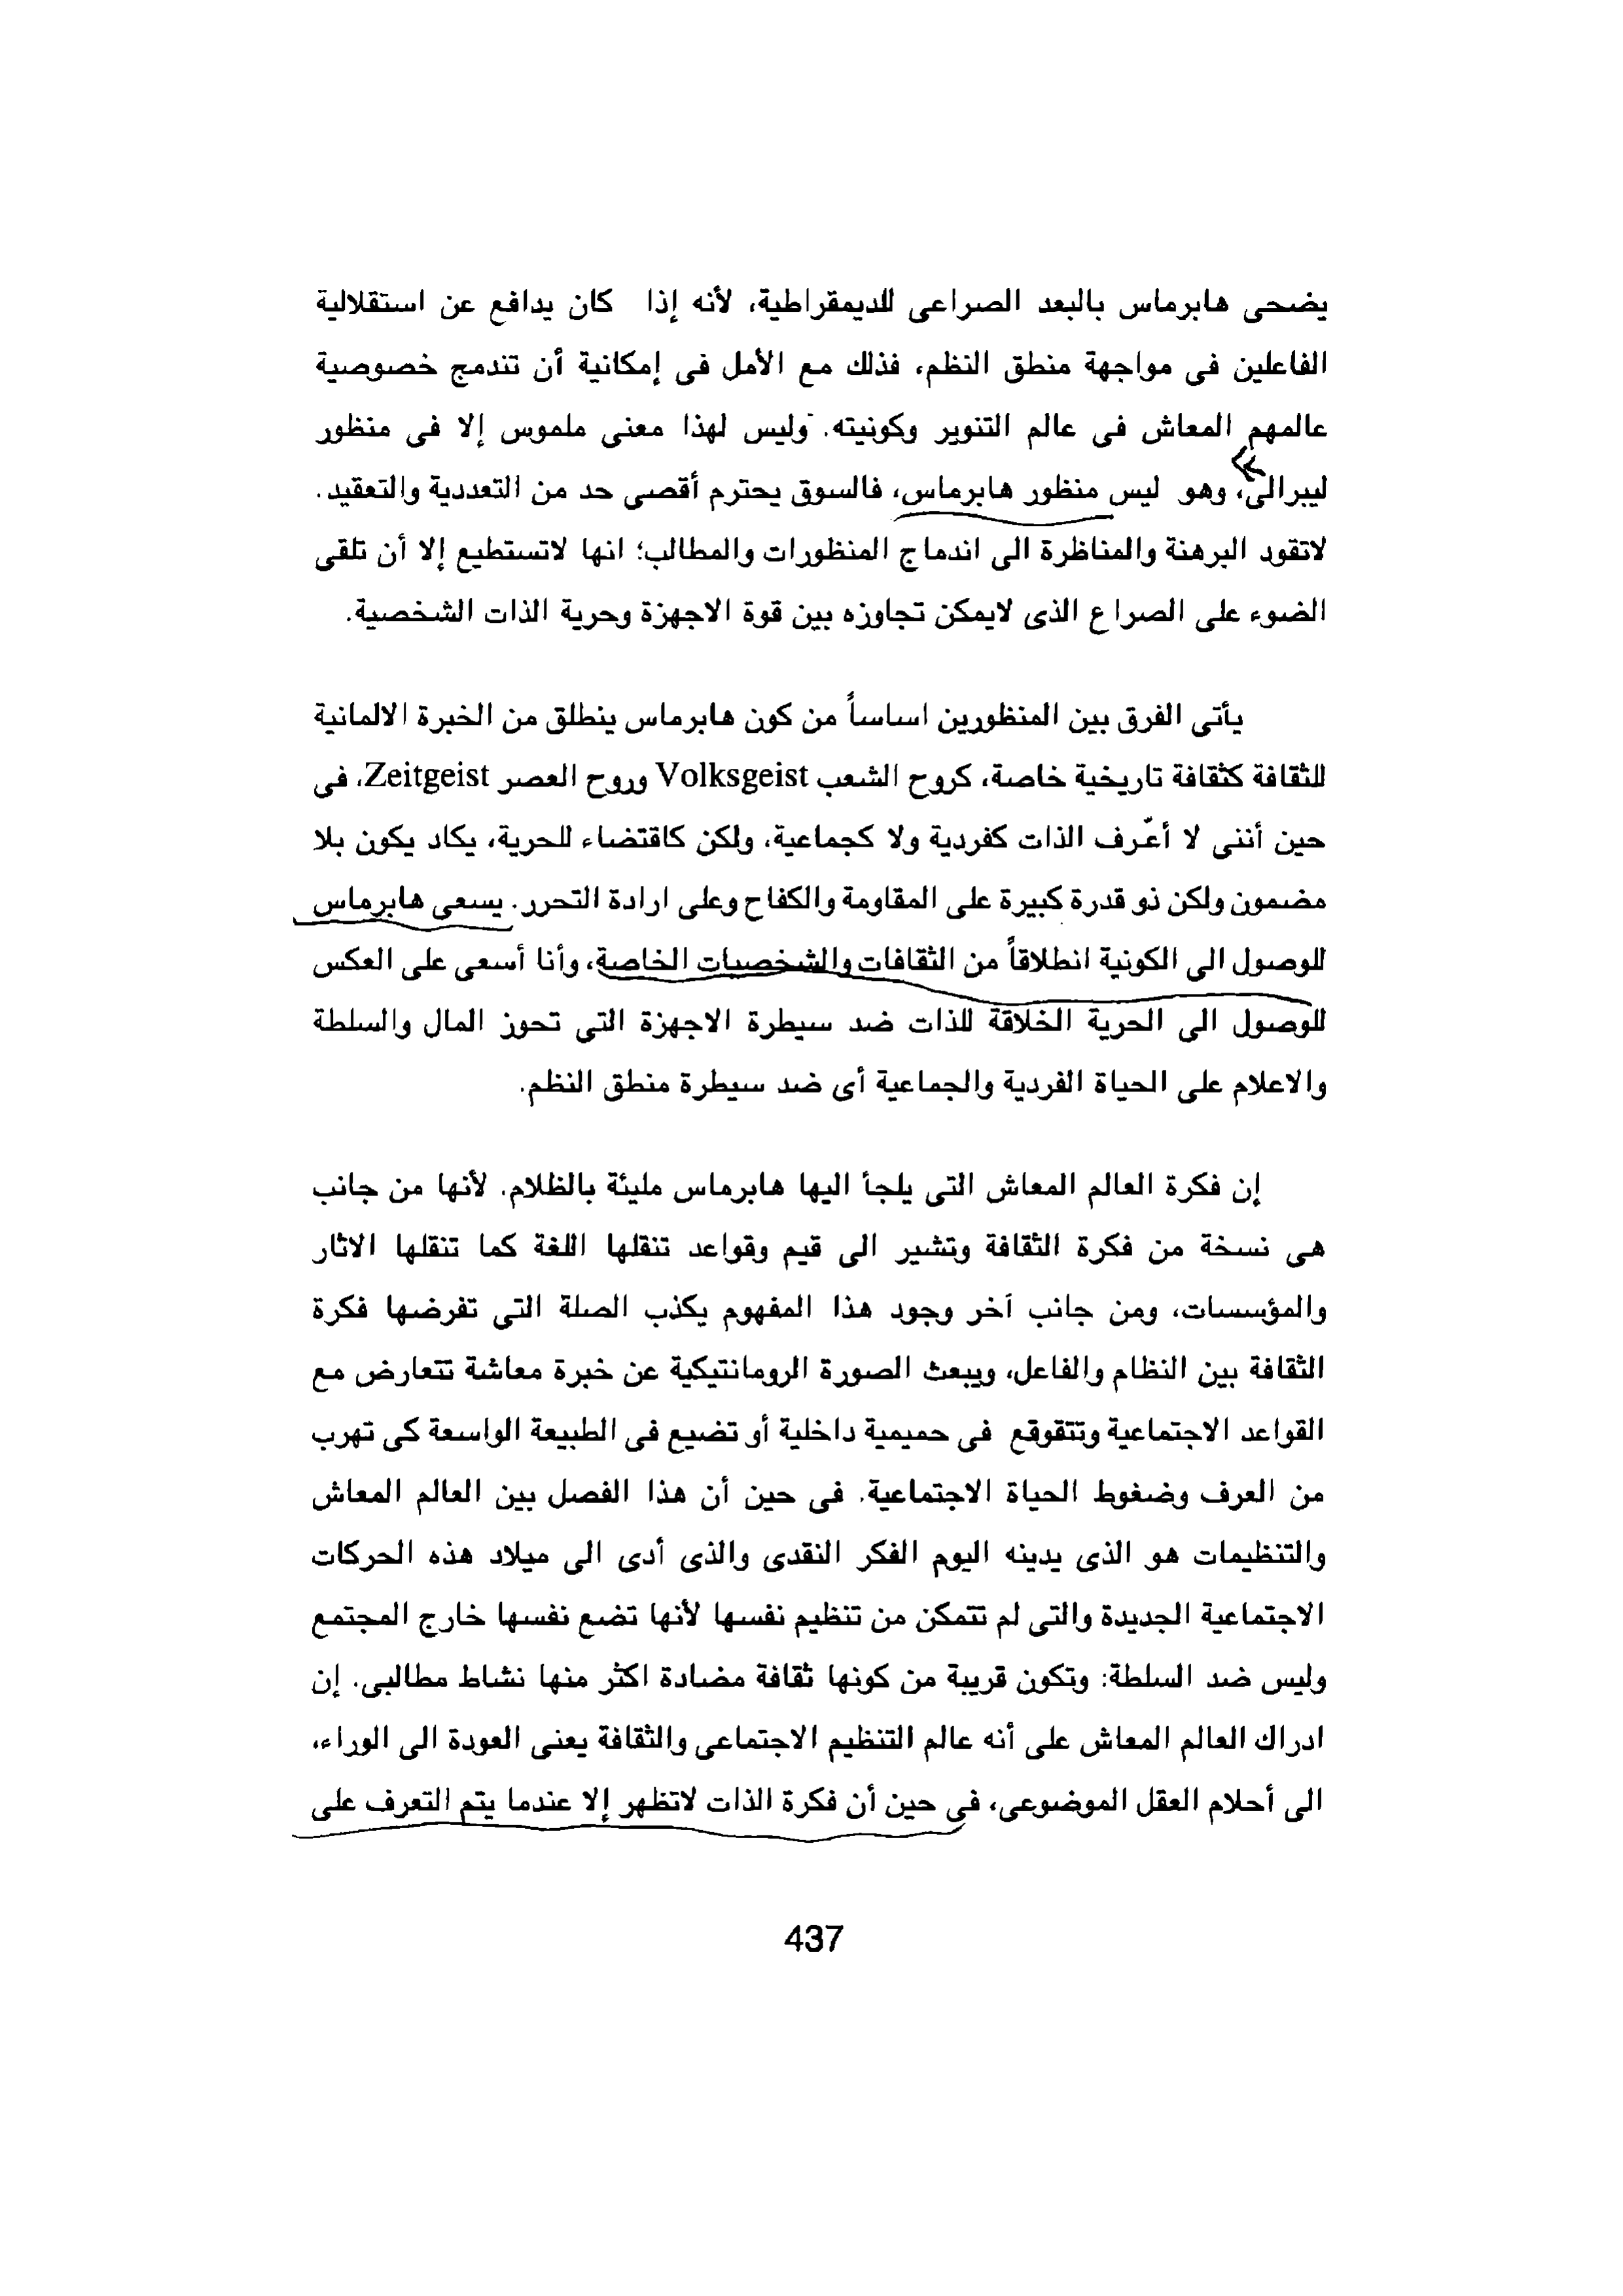 يضحى هابرماس بالبعد الصراعى للديمقراطية، لأنه إذا كان يدافع عن استقلالية
الفاعلين فى مواجهة منطق النظم، فذلك مع الأمل فى إمكانية أن تندمج خصوصية
عالمهم المعاش فى عالم التنوير وكونيته. وليس لهذا معنى ملموس إلا فى منظور
ليبرالى، وهو ليس منظور هابرماس، فالسوق يحترم أقصى حد من التعددية والتعقيد.
لاتقود البرهنة والمناظرة الى اندماج المنظورات والمطالب؛ انها لاتستطيع إلا أن تلقى
الضوء على الصراع الذى لايمكن تجاوزه بين قوة الاجهزة وحرية الذات الشخصية.
يأتى الفرق بين المنظورين اساساً من كون هابرماس ينطلق من الخبرة الالمانية
للثقافة كثقافة تاريخية خاصة، كروح الشعب Volksgeist وروح العصر Zeitgeist، فى
حين أننى لا أعّرف الذات كفردية ولا كجماعية، ولكن كاقتضاء للحرية، يكاد يكون بلا
مضمون ولكن ذو قدرة كبيرة على المقاومة والكفاح وعلى ارادة التحرر. يسعى هابرماس
للوصول الى الكونية انطلاقاً من الثقافات والشخصيات الخاصة، وأنا أسعى على العكس
للوصول الى الحرية الخلاقة للذات ضد سيطرة الاجهزة التى تحوز المال والسلطة
والاعلام على الحياة الفردية والجماعية أى ضد سيطرة منطق النظم.
إن فكرة العالم المعاش التى يلجأ اليها هابرماس مليئة بالظلام. لأنها من جانب
هى نسخة من فكرة الثقافة وتشير الى قيم وقواعد تنقلها اللغة كما تنقلها الاثار
والمؤسسات، ومن جانب آخر وجود هذا المفهوم يكذب الصلة التى تفرضها فكرة
الثقافة بين النظام والفاعل، ويبعث الصورة الرومانتيكية عن خبرة معاشة تتعارض مع
القواعد الاجتماعية وتتقوقع فى حميمية داخلية أو تضيع فى الطبيعة الواسعة كى تهرب
من العرف وضغوط الحياة الاجتماعية. فى حين أن هذا الفصل بين العالم المعاش
والتنظيمات هو الذى يدينه اليوم الفكر النقدى والذى أدى الى ميلاد هذه الحركات
الاجتماعية الجديدة والتى لم تتمكن من تنظيم نفسها لأنها تضع نفسها خارج المجتمع
وليس ضد السلطة: وتكون قريبة من كونها ثقافة مضادة اكثر منها نشاط مطالبى. إن
ادراك العالم المعاش على أنه عالم التنظيم الاجتماعى والثقافة يعنى العودة الى الوراء،
الى أحلام العقل الموضوعى، فى حين أن فكرة الذات لاتظهر إلا عندما يتم التعرف على
437